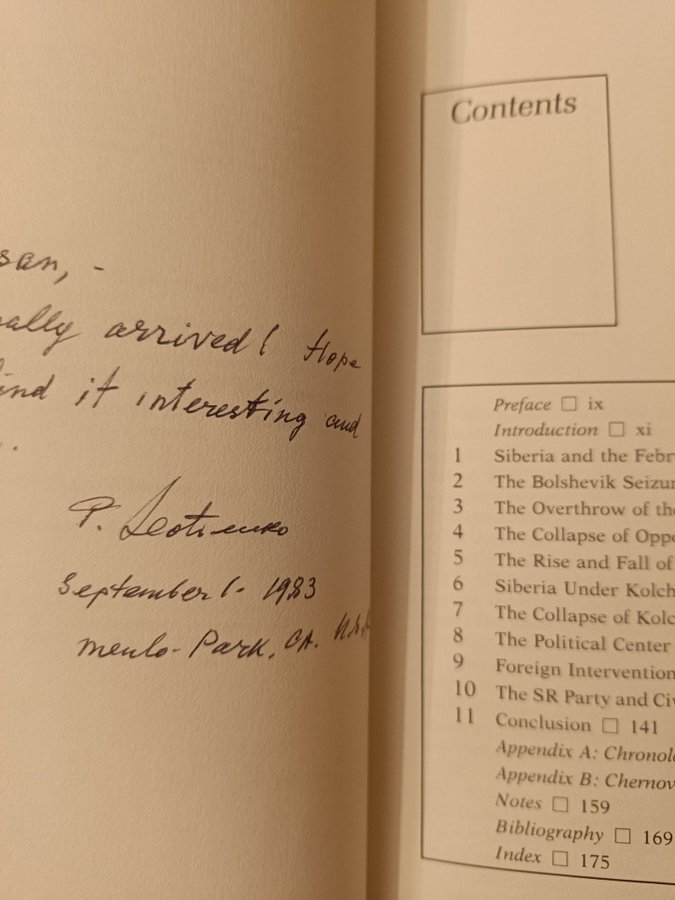 san, -
ally arrived! Hope
ind it interesting and
.
P.
September 1 - 1983
Menlo-Park, CA.
Contents
Preface □ ix
Introduction □ xi
1 Siberia and the Febr
2 The Bolshevik Seizur
3 The Overthrow of the
4 The Collapse of Oppo
5 The Rise and Fall of
6 Siberia Under Kolch
7 The Collapse of Kolc
8 The Political Center
9 Foreign Intervention
10 The SR Party and Civ
11 Conclusion □ 141
Appendix A: Chronolo
Appendix B: Chernov
Notes □ 159
Bibliography □ 169
Index □ 175